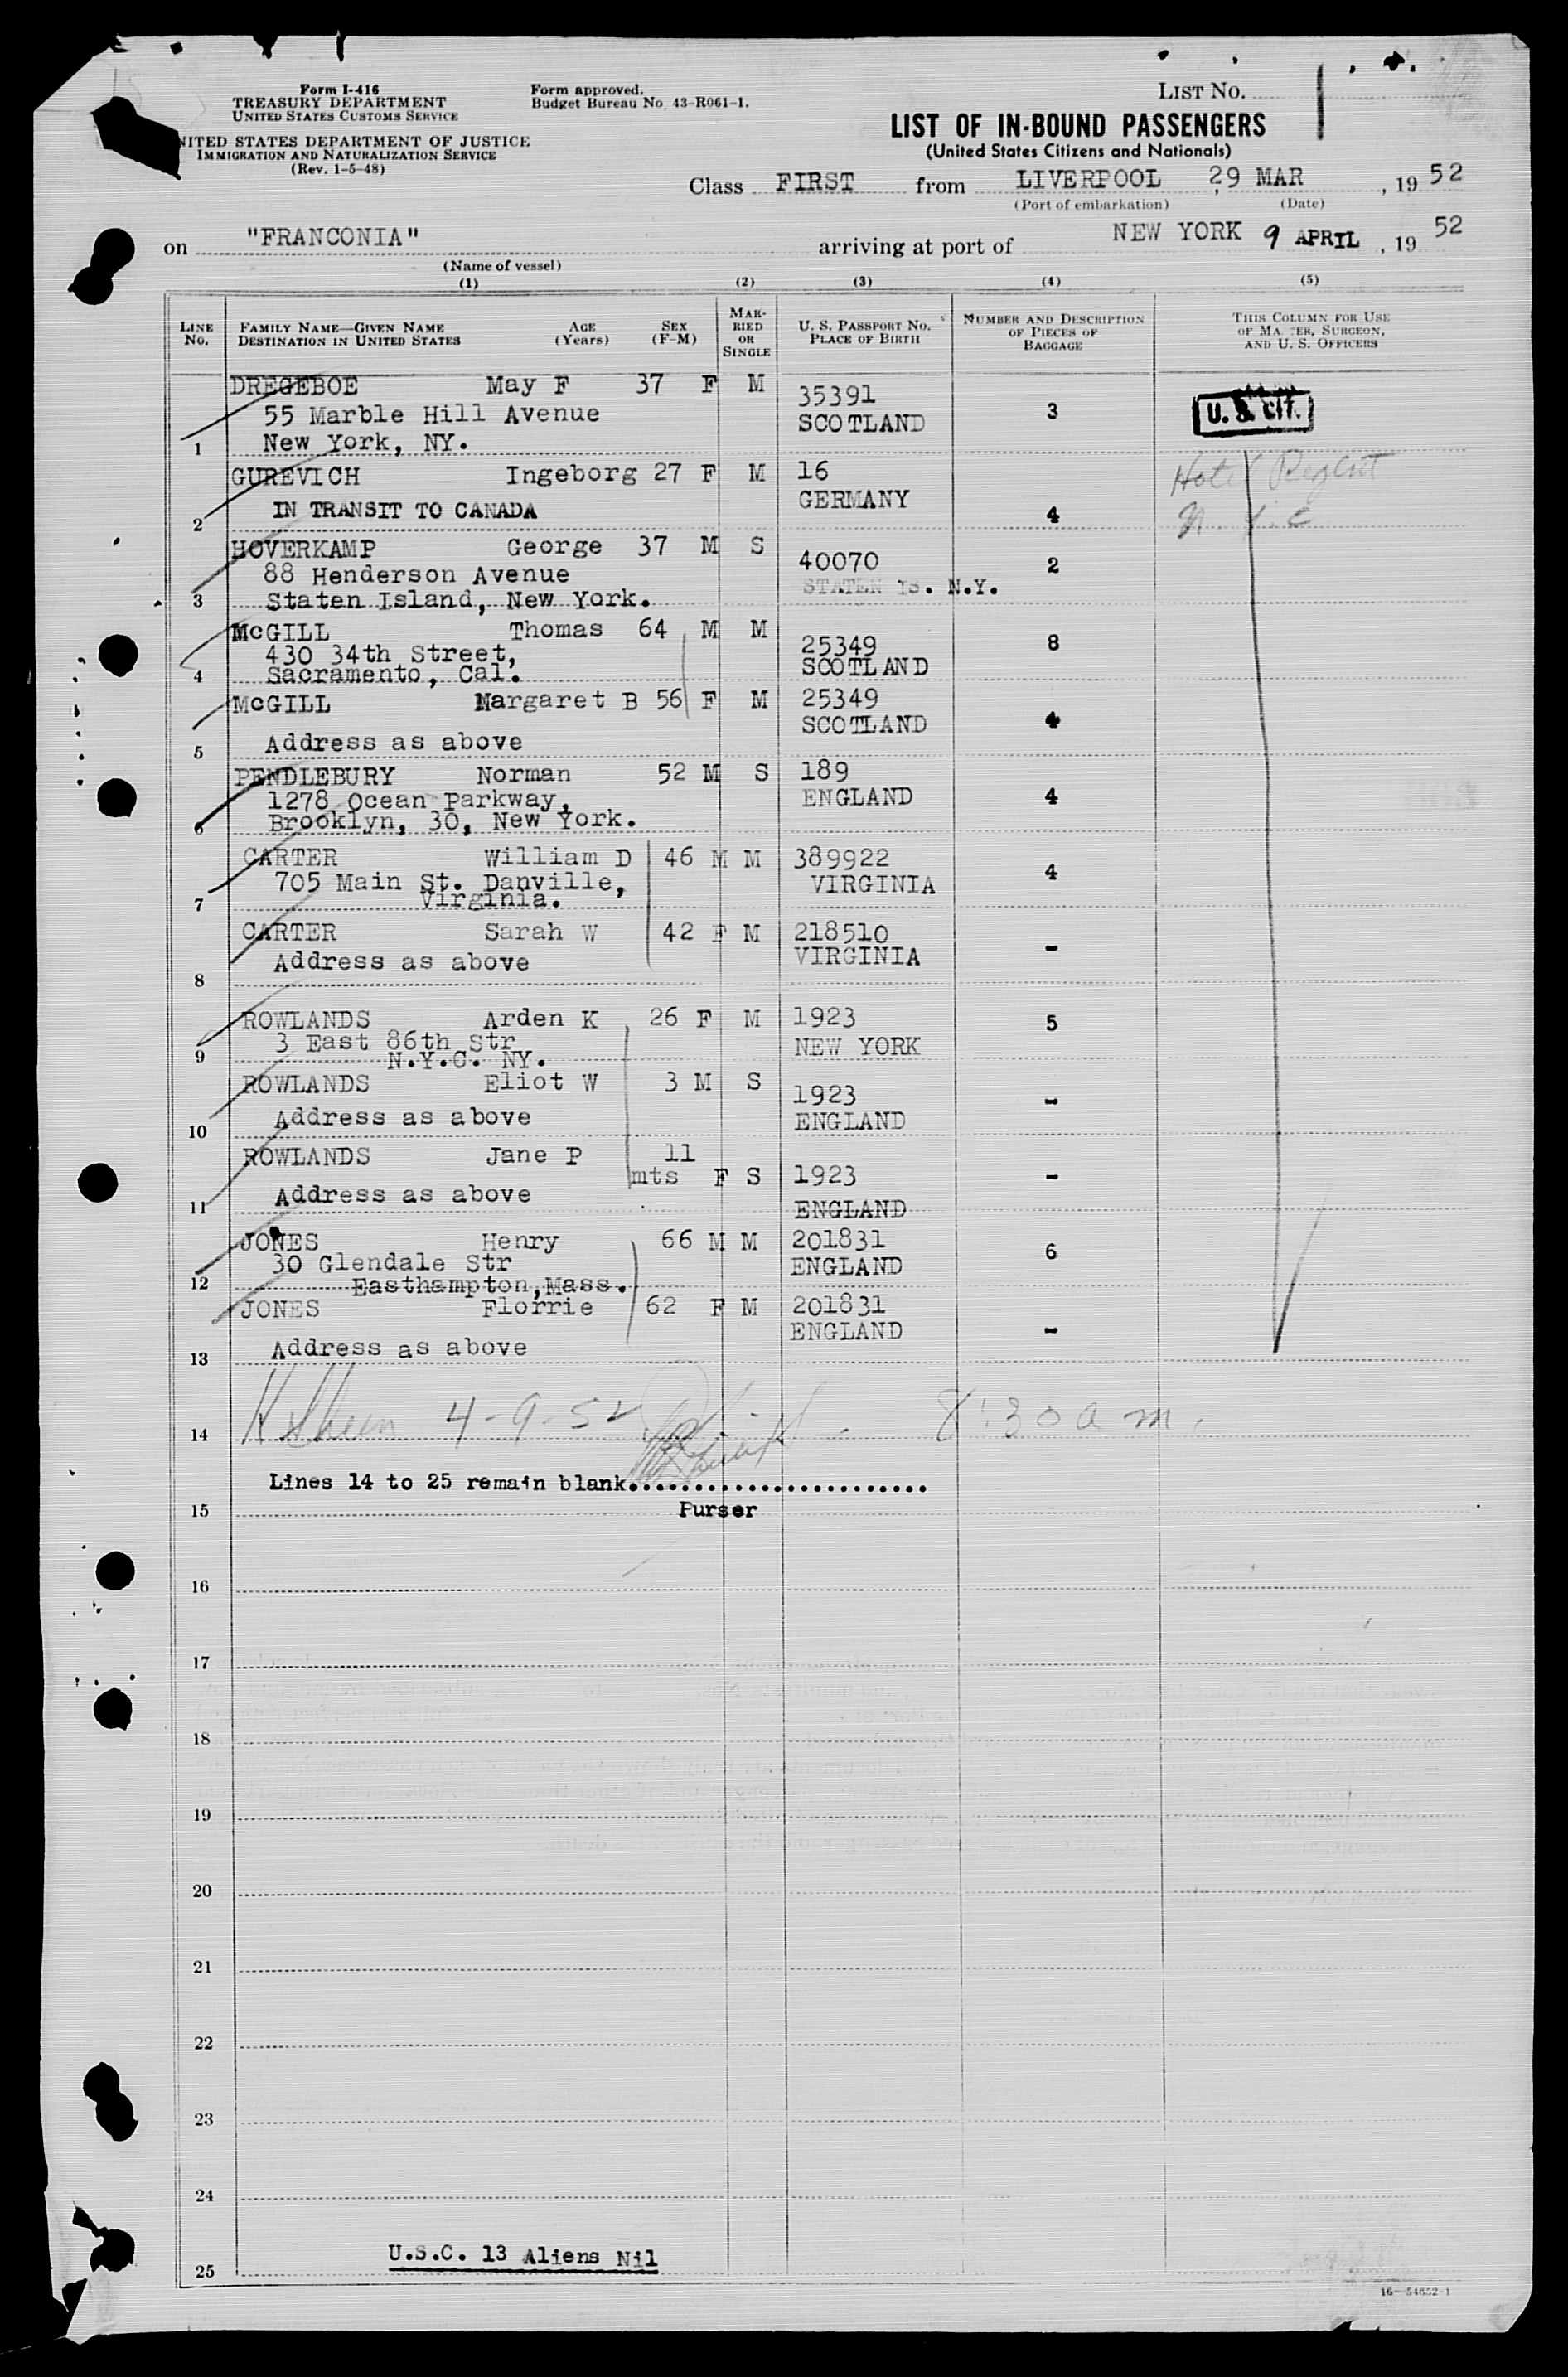 Form I-416
TREASURY DEPARTMENT
UNITED STATES CUSTOMS SERVICE
NITED STATES DEPARTMENT OF JUSTICE
IMMIGRATION AND NATURALIZATION SERVICE
(Rev. 1-5-48)
Form approved.
Budget Bureau No. 43-R061-1.
LIST NO. 1
LIST OF IN-BOUND PASSENGERS
(United States Citizens and Nationals)
Class FIRST from LIVERPOOL, 29 MAR, 19 52
(Port of embarkation) (Date)
on "FRANCONIA" arriving at port of NEW YORK 9 APRIL, 19 52
(Name of vessel)
(1) (2) (3) (4) (5)
LINE NO. FAMILY NAME—GIVEN NAME DESTINATION IN UNITED STATES AGE (Years) SEX (F-M) MARRIED OR SINGLE U. S. PASSPORT NO. PLACE OF BIRTH NUMBER AND DESCRIPTION OF PIECES OF BAGGAGE THIS COLUMN FOR USE OF MA TER, SURGEON, AND U. S. OFFICERS
DREGEBOE May F 37 F M 35391
55 Marble Hill Avenue SCOTLAND 3 U. S. cit.
1 New York, NY.
GUREVICH Ingeborg 27 F M 16 Hotel Regent
IN TRANSIT TO CANADA GERMANY 4 N. Y. C
2
HOVERKAMP George 37 M S 40070 2
88 Henderson Avenue
3 Staten Island, New York. STATEN IS. N.Y.
McGILL Thomas 64 M M 25349 8
430 34th Street, SCOTLAND
4 Sacramento, Cal.
McGILL Margaret B 56 F M 25349
SCOTLAND 4
5 Address as above
PENDLEBURY Norman 52 M S 189
1278 Ocean Parkway, ENGLAND 4
6 Brooklyn, 30, New York.
CARTER William D 46 M M 389922
705 Main St. Danville, VIRGINIA 4
7 Virginia.
CARTER Sarah W 42 F M 218510
Address as above VIRGINIA -
8
ROWLANDS Arden K 26 F M 1923 5
3 East 86th Str NEW YORK
9 N.Y.C. NY.
ROWLANDS Eliot W 3 M S 1923
10 Address as above ENGLAND -
ROWLANDS Jane P 11
mts F S 1923 -
11 Address as above ENGLAND
JONES Henry 66 M M 201831
30 Glendale Str ENGLAND 6
12 Easthampton, Mass.
JONES Florrie 62 F M 201831
ENGLAND -
13 Address as above
14 4-9-52 8:30 a m.
Lines 14 to 25 remain blank........................
15 Purser
16
17
18
19
20
21
22
23
24
25 U.S.C. 13 Aliens Nil
16—54652-1